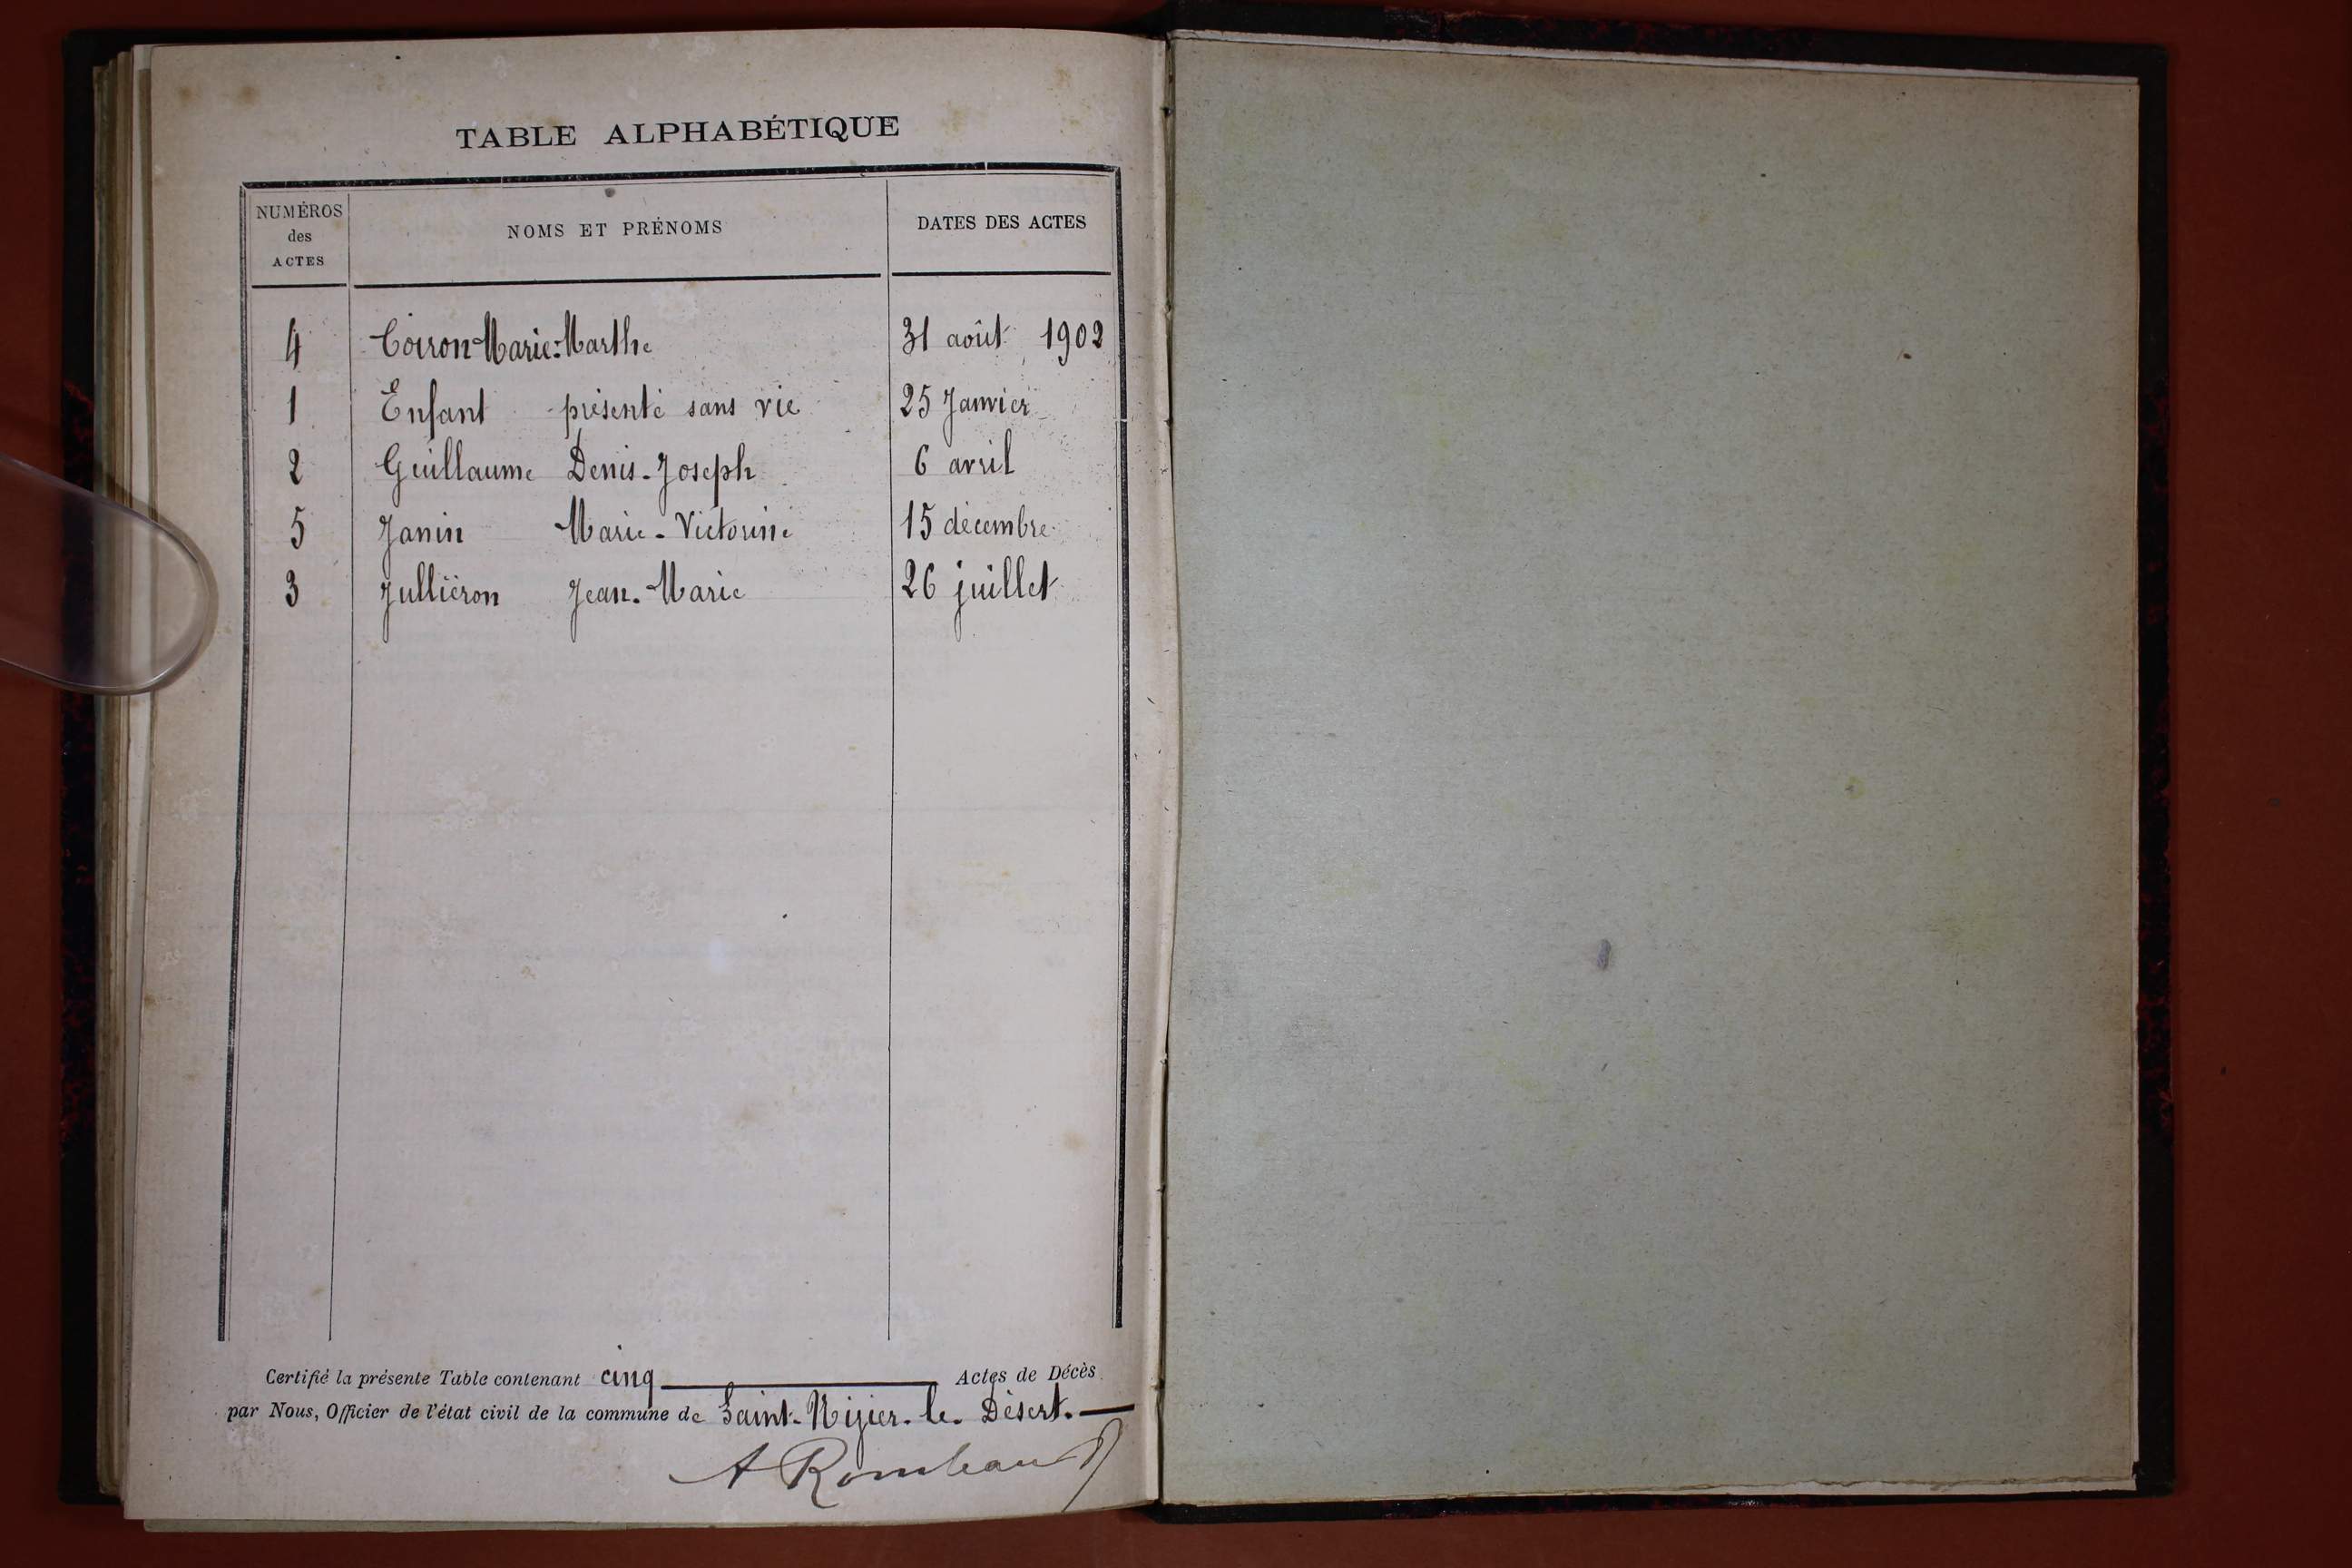 TABLE ALPHABÉTIQUE
NUMÉROS des ACTES NOMS ET PRÉNOMS DATES DES ACTES
4 Coiron Marie-Marthe 31 août 1902
1 Enfant présenté sans vie 25 Janvier
2 Guillaume Denis-Joseph 6 avril
5 Janin Marie-Victorine 15 décembre
3 Julliéron Jean-Marie 26 juillet
Certifié la présente Table contenant cinq Actes de Décès
par Nous, Officier de l'état civil de la commune de Saint-Nizier-le-Désert.
A Rombaud